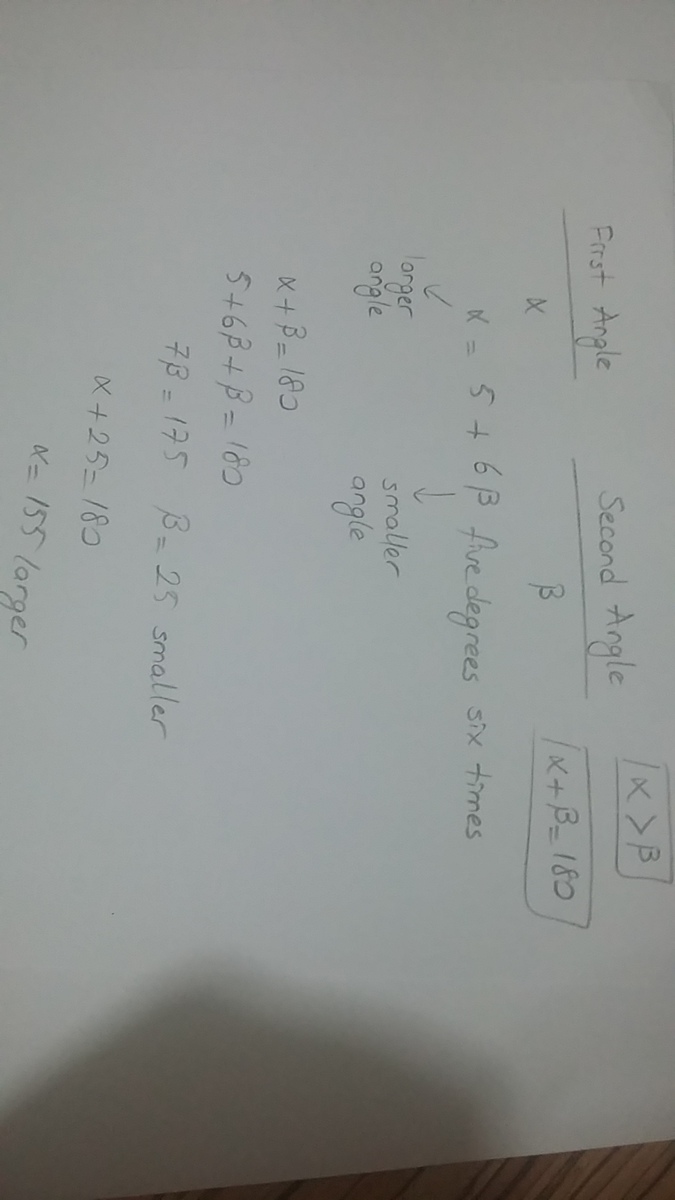 First Angle Second Angle α > β
α β α + β = 180
α = 5 + 6β five degrees six times
↓ ↓
larger smaller
angle angle
α + β = 180
5 + 6β + β = 180
7β = 175 β = 25 smaller
α + 25 = 180
α = 155 larger